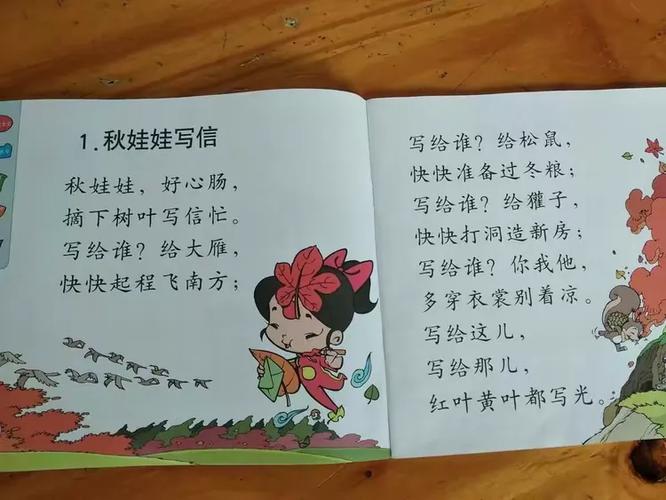 1.秋娃娃写信
秋娃娃，好心肠，
摘下树叶写信忙。
写给谁？给大雁，
快快起程飞南方；
写给谁？给松鼠，
快快准备过冬粮；
写给谁？给獾子，
快快打洞造新房；
写给谁？你我他，
多穿衣裳别着凉。
写给这儿，
写给那儿，
红叶黄叶都写光。